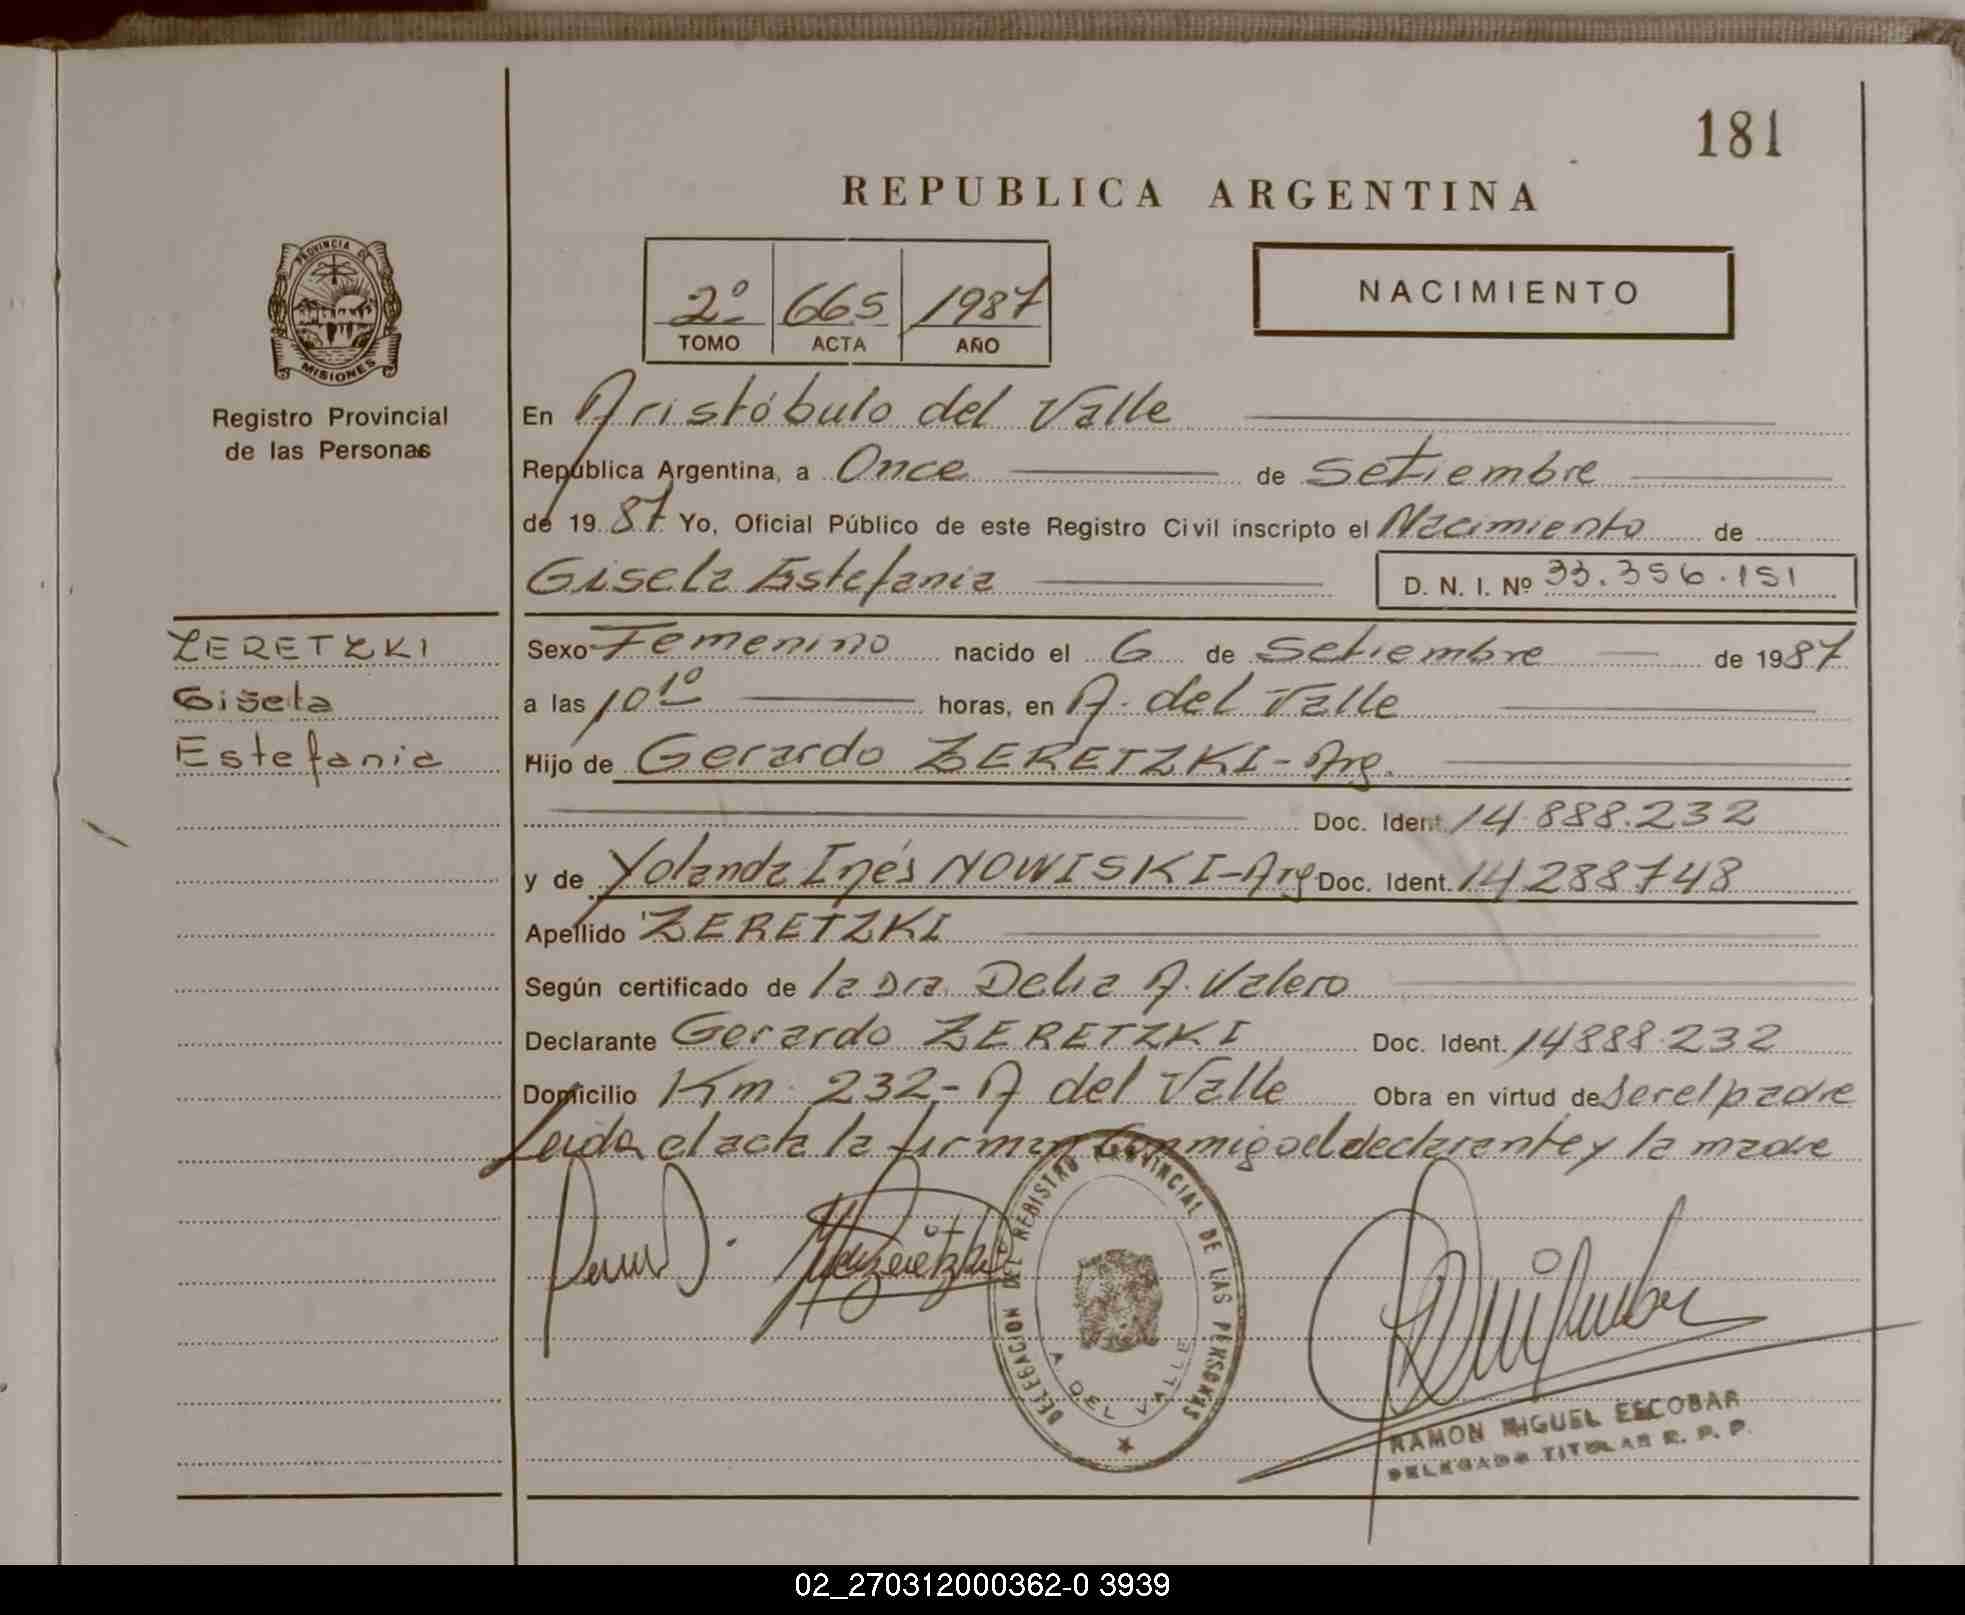 181
REPUBLICA ARGENTINA
PROVINCIA DE
MISIONES
Registro Provincial
de las Personas
2º 665 1987
TOMO ACTA AÑO
NACIMIENTO
En Aristóbulo del Valle
República Argentina, a Once de Setiembre
de 1987 Yo, Oficial Público de este Registro Civil inscripto el Nacimiento de
Gisela Estefania D. N. I. Nº 33.356.151
ZERETZKI
Gisela
Estefania
Sexo Femenino nacido el 6 de Setiembre de 1987
a las 10 10 horas, en A. del Valle
Hijo de Gerardo ZERETZKI - Arg.
Doc. Ident. 14.888.232
y de Yolanda Inés NOWISKI - Arg Doc. Ident. 14288748
Apellido ZERETZKI
Según certificado de la Dra. Delia A. Valero
Declarante Gerardo ZERETZKI Doc. Ident. 14888.232
Domicilio Km. 232 - A del Valle Obra en virtud de ser el padre
Leida el acta la firman conmigo el declarante y la madre
DELEGACION DEL REGISTRO PROVINCIAL DE LAS PERSONAS
A. DEL VALLE
RAMON MIGUEL ESCOBAR
DELEGADO TITULAR R. P. P.
02_270312000362-0 3939